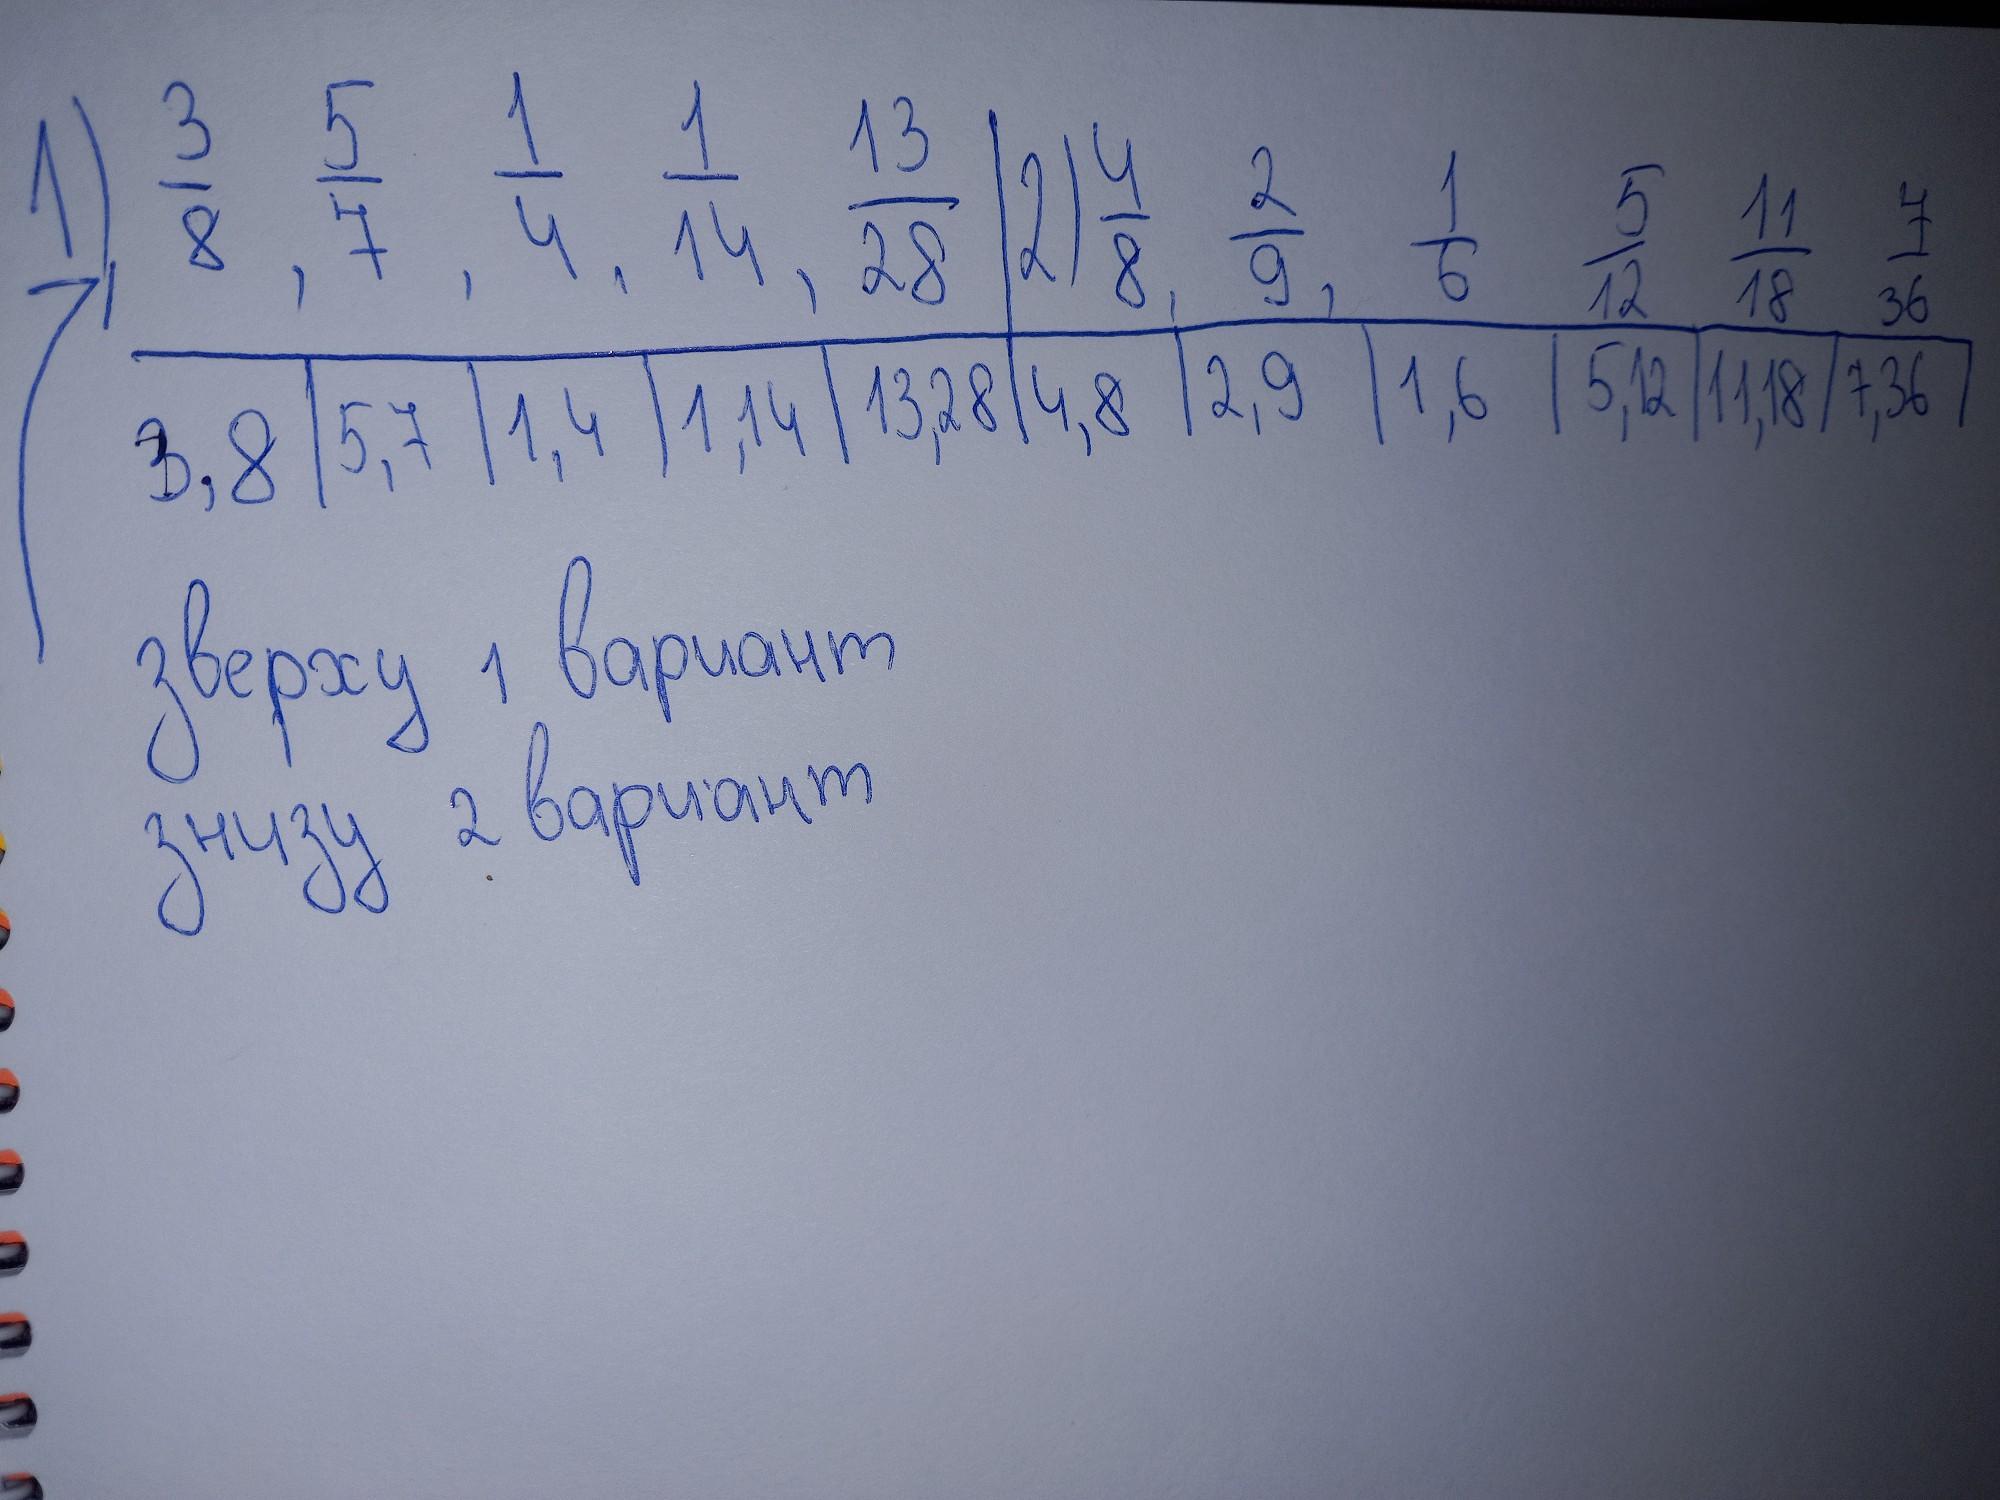 1) 3/8, 5/7, 1/4, 1/14, 13/28 | 2) 4/8, 2/9, 1/6 5/12 11/18 7/36
3,8 | 5,7 | 1,4 | 1,14 | 13,28 | 4,8 | 2,9 | 1,6 | 5,12 | 11,18 | 7,36 |
зверху 1 вариант
знизу 2 вариант